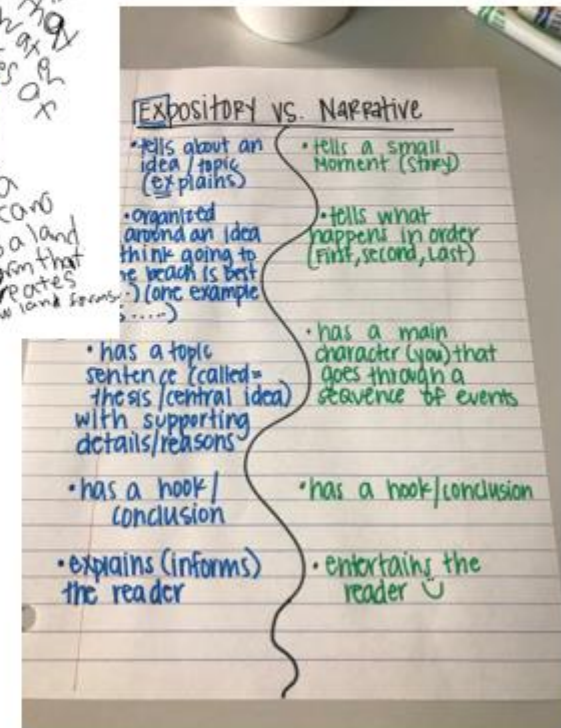 EXpository vs. Narrative
• tells about an
idea/topic
(explains)
• organized
around an idea
think going to
beach is best
(one example
.....)
• has a topic
sentence (called=
thesis/central idea)
with supporting
details/reasons
• has a hook/
conclusion
• explains (informs)
the reader
• tells a small
Moment (story)
• tells what
happens in order
(First, second, Last)
• has a main
character (you) that
goes through a
sequence of events
• has a hook/conclusion
• entertains the
reader
a land
that
land forms